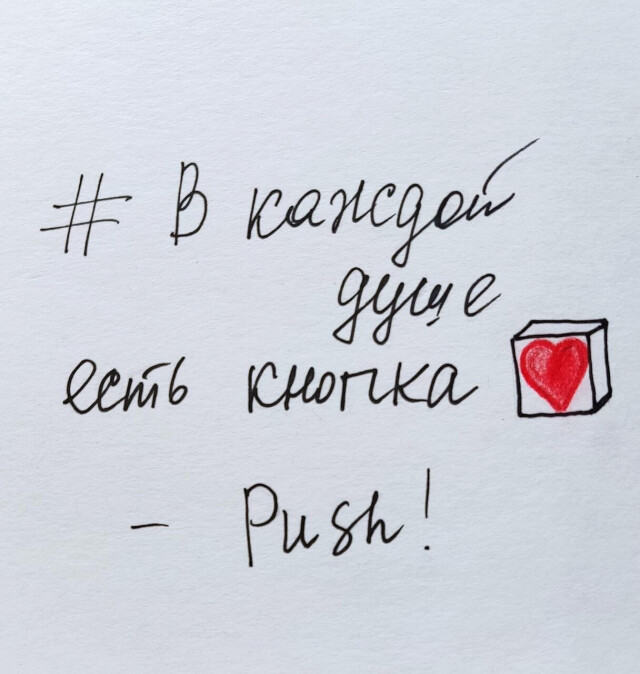 # В каждой
душе
есть кнопка
- Push!